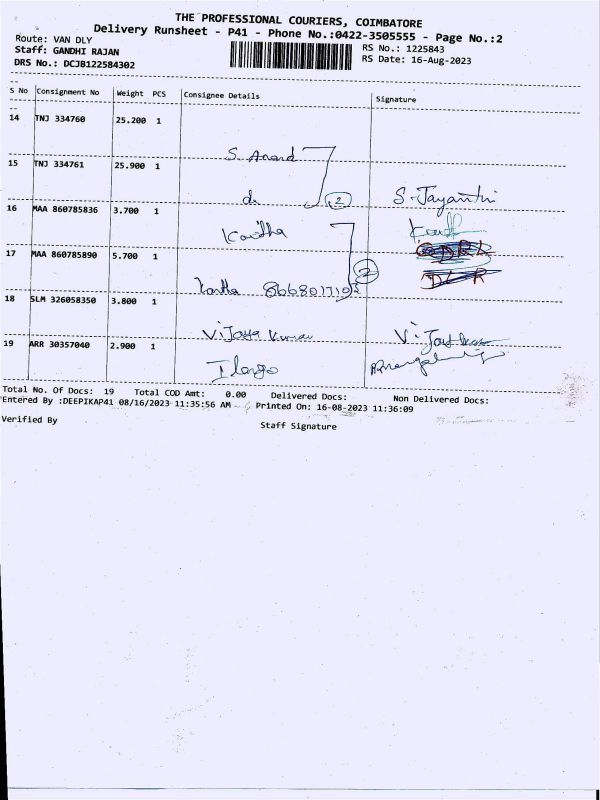 THE PROFESSIONAL COURIERS, COIMBATORE
Delivery Runsheet - P41 - Phone No.:0422-3505555 - Page No.:2
Route: VAN DLY
Staff: GANDHI RAJAN
DRS No.: DCJB122584302
RS No.: 1225843
RS Date: 16-Aug-2023
S No Consignment No Weight PCS Consignee Details Signature
14 TNJ 334760 25.200 1
S. Anand
15 TNJ 334761 25.900 1
do 2 S. Jayanthi
16 MAA 860785836 3.700 1
Kavitha
17 MAA 860785890 5.700 1
2
18 SLM 326058350 3.800 1
Vijaya Kumar
19 ARR 30357040 2.900 1
Ilango
Total No. Of Docs: 19 Total COD Amt: 0.00 Delivered Docs: Non Delivered Docs:
Entered By :DEEPIKAP41 08/16/2023 11:35:56 AM Printed On: 16-08-2023 11:36:09
Verified By Staff Signature